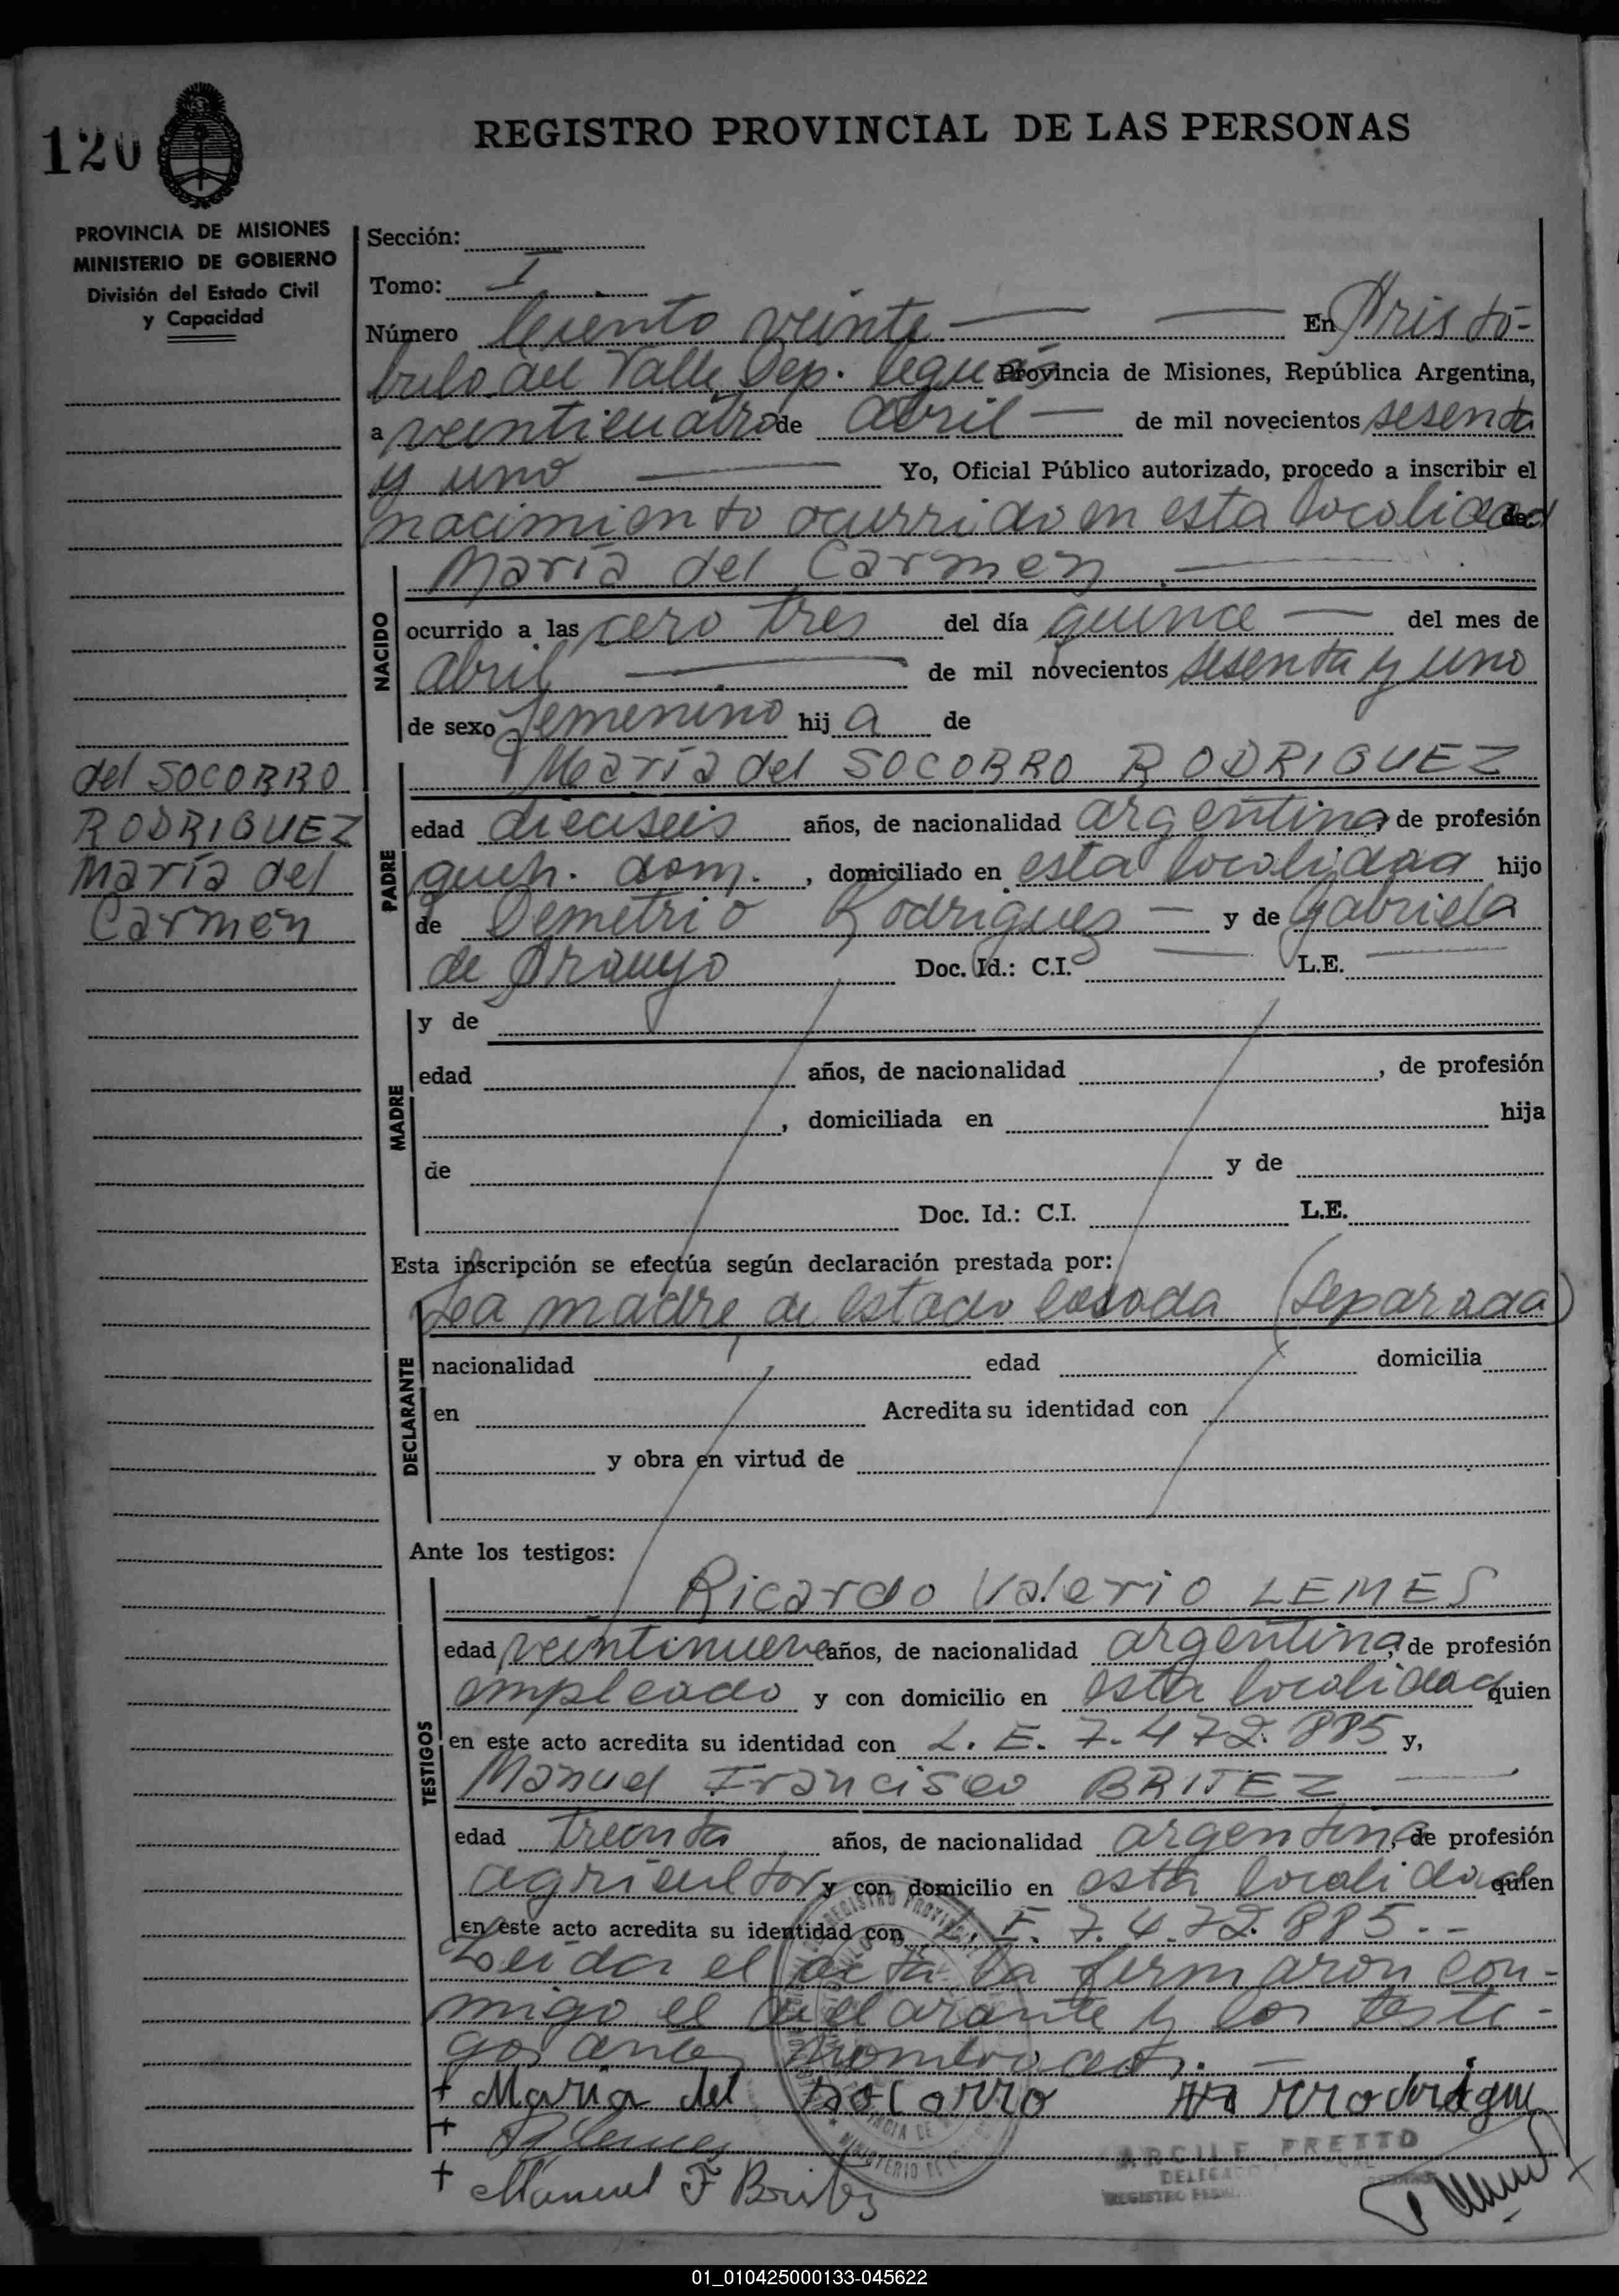 120
REGISTRO PROVINCIAL DE LAS PERSONAS
PROVINCIA DE MISIONES
MINISTERIO DE GOBIERNO
División del Estado Civil
y Capacidad
Sección:
Tomo: I
Número Ciento veinte En Aristó-
bulo del Valle Dep. Provincia de Misiones, República Argentina,
a veinticuatro de abril de mil novecientos sesenta
y uno Yo, Oficial Público autorizado, procedo a inscribir el
nacimiento ocurrido en esta localidad de:
María del Carmen
NACIDO
ocurrido a las cero tres del día quince del mes de
abril de mil novecientos sesenta y uno
de sexo femenino hija de
María del SOCORRO RODRIGUEZ
del SOCORRO
RODRIGUEZ
María del
Carmen
PADRE
edad dieciseis años, de nacionalidad argentina de profesión
queh. dom. , domiciliado en esta localidad hijo
de Demetrio Rodriguez y de Gabriela
de Araujo Doc. Id.: C.I. L.E.
MADRE
y de
edad años, de nacionalidad , de profesión
, domiciliada en hija
de y de
Doc. Id.: C.I. L.E.
Esta inscripción se efectúa según declaración prestada por:
La madre de estado casada (separada)
DECLARANTE
nacionalidad edad domicilia
en Acredita su identidad con
y obra en virtud de
Ante los testigos:
Ricardo Valerio LEMES
TESTIGOS
edad veintinueve años, de nacionalidad argentina, de profesión
empleado y con domicilio en esta localidad quien
en este acto acredita su identidad con L. E. 7.472.885 y,
Manuel Francisco BRITEZ
edad treinta años, de nacionalidad argentina, de profesión
agricultor y con domicilio en esta localidad quien
en este acto acredita su identidad con L. E. 7.472.885.-
Leida el acta la firmaron con-
migo el declarante y los testi-
gos antes nombrados.
+ Maria del socorro rrodrigue
+ RLemes
+ Manuel F Britez
ARCILE PRETTO
01_010425000133-045622